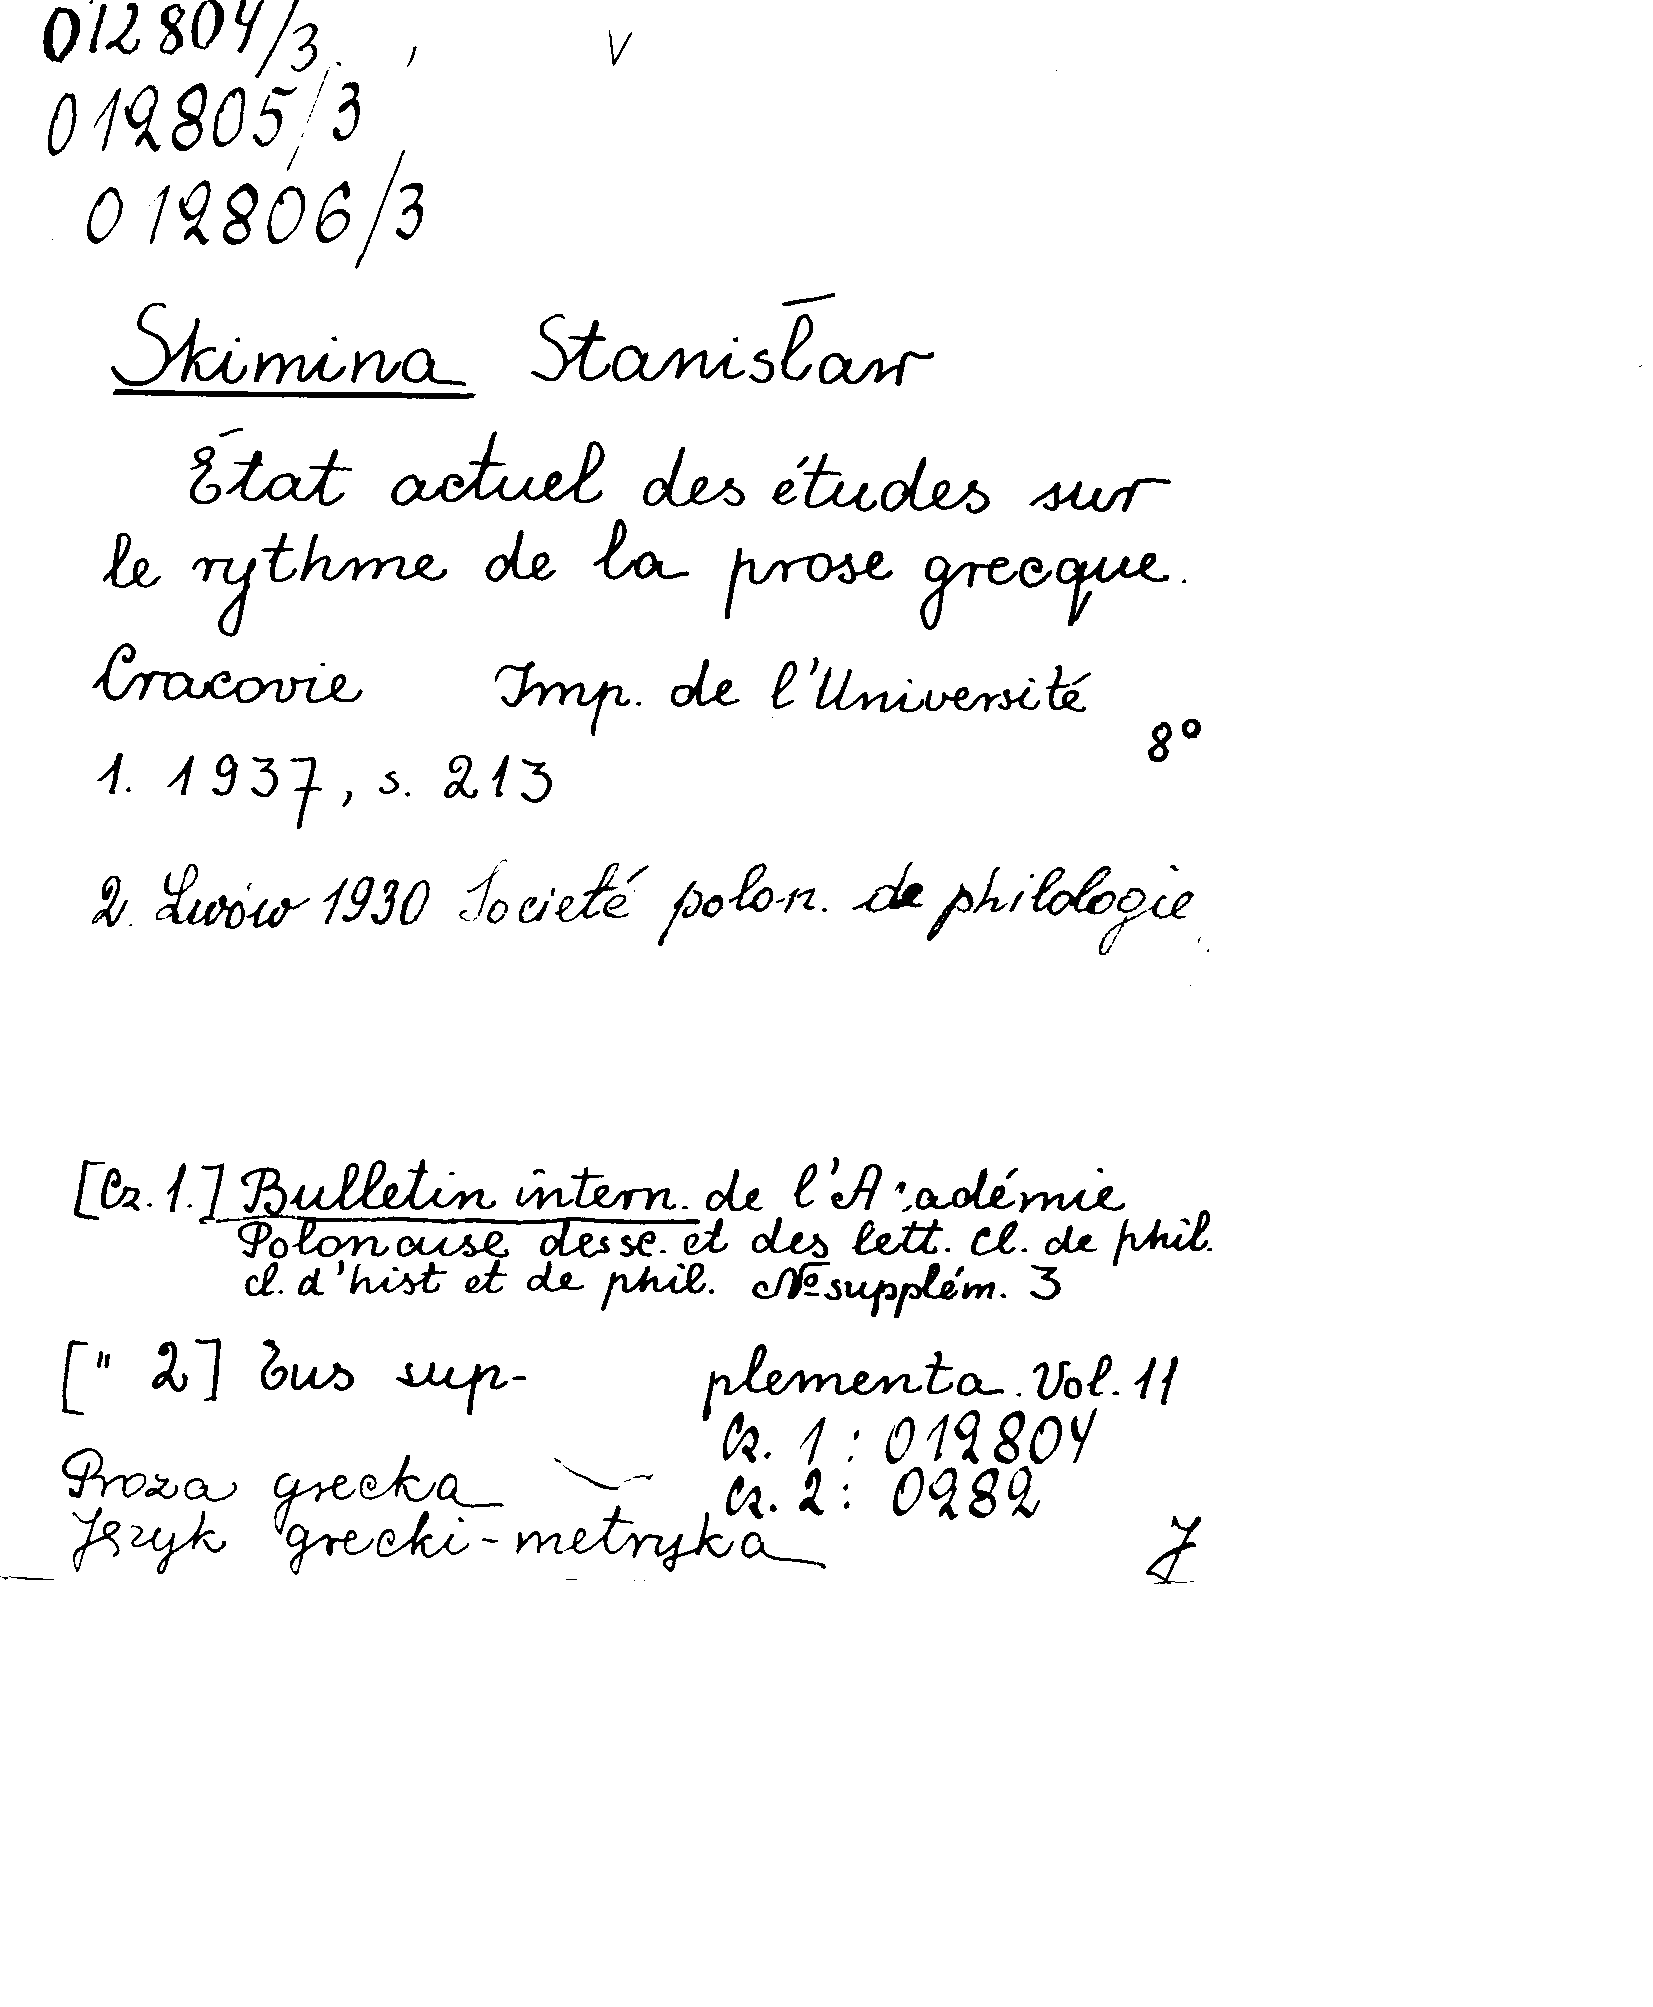 012804/3
012805/3
012806/3
Skimina Stanisław
État actuel des études sur
le rythme de la prose grecque.
Cracovie Imp. de l'Université
8°
1. 1937, s. 213
2. Lwów 1930 Societé polon. de philologie
[Cz. 1.] Bulletin intern. de l'Académie
Polonaise des sc. et des lett. cl. de phil.
cl. d'hist et de phil. № supplém. 3
[" 2] Eus supplementa. Vol. 11
Cz. 1 : 012804
Cz. 2 : 0282
Proza grecka
Język grecki - metryka